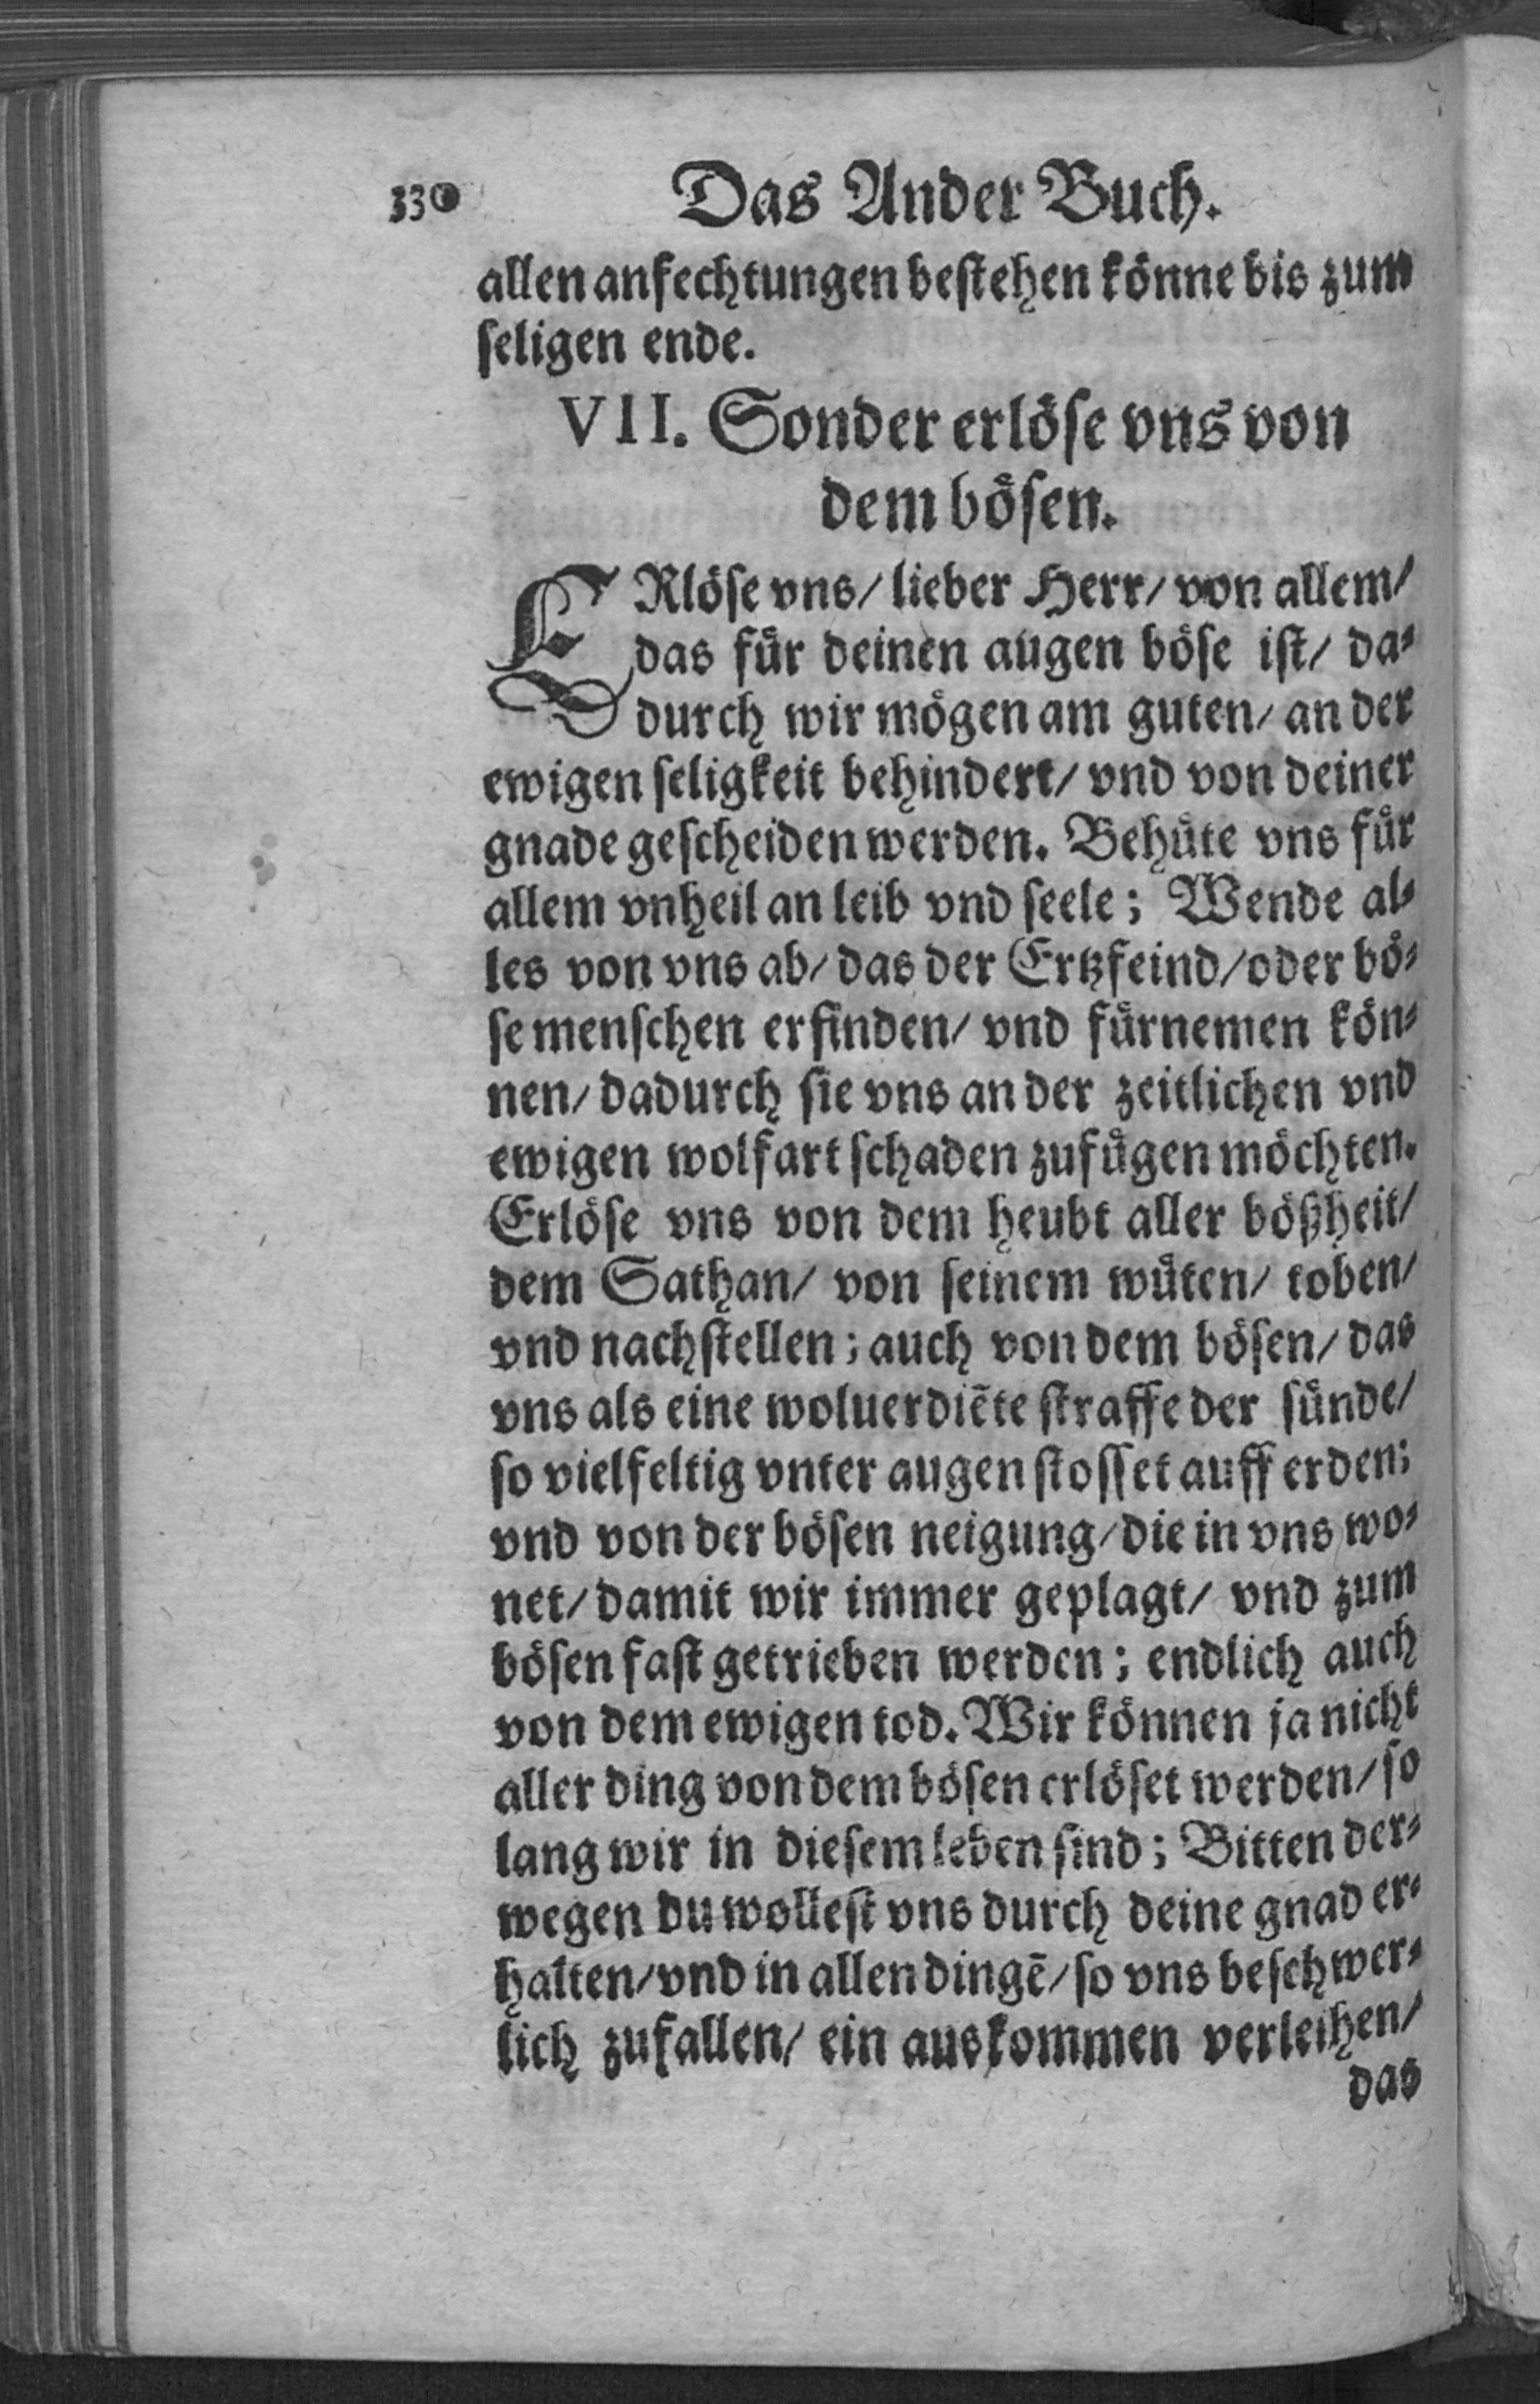 330 Das Ander Buch.
allen anfechtungen bestehen könne bis zum
seligen ende.
VII. Sonder erlöse vns von
dem bösen.
ERlöse vns/ lieber Herr/ von allem/
das für deinen augen böse ist/ da⸗
durch wir mögen am guten/ an der
ewigen seligkeit behindert/ vnd von deiner
gnade gescheiden werden. Behüte vns für
allem vnheil an leib vnd seele; Wende al⸗
les von vns ab/ das der Ertzfeind/ oder bö⸗
se menschen erfinden/ vnd fürnemen kön⸗
nen/ dadurch sie vns an der zeitlichen vnd
ewigen wolfart schaden zufügen möchten.
Erlöse vns von dem heubt aller bößheit/
dem Sathan/ von seinem wüten/ toben/
vnd nachstellen; auch von dem bösen/ das
vns als eine woluerdiẽte straffe der sünde/
so vielfeltig vnter augen stosset auff erden;
vnd von der bösen neigung/ die in vns wo⸗
net/ damit wir immer geplagt/ vnd zum
bösen fast getrieben werden; endlich auch
von dem ewigen tod. Wir können ja nicht
aller ding von dem bösen erlöset werden/ so
lang wir in diesem leben sind; Bitten der⸗
wegen du wollest vns durch deine gnad er⸗
halten/ vnd in allen dingẽ/ so vns beschwer⸗
lich zufallen/ ein auskommen verleihen/
das